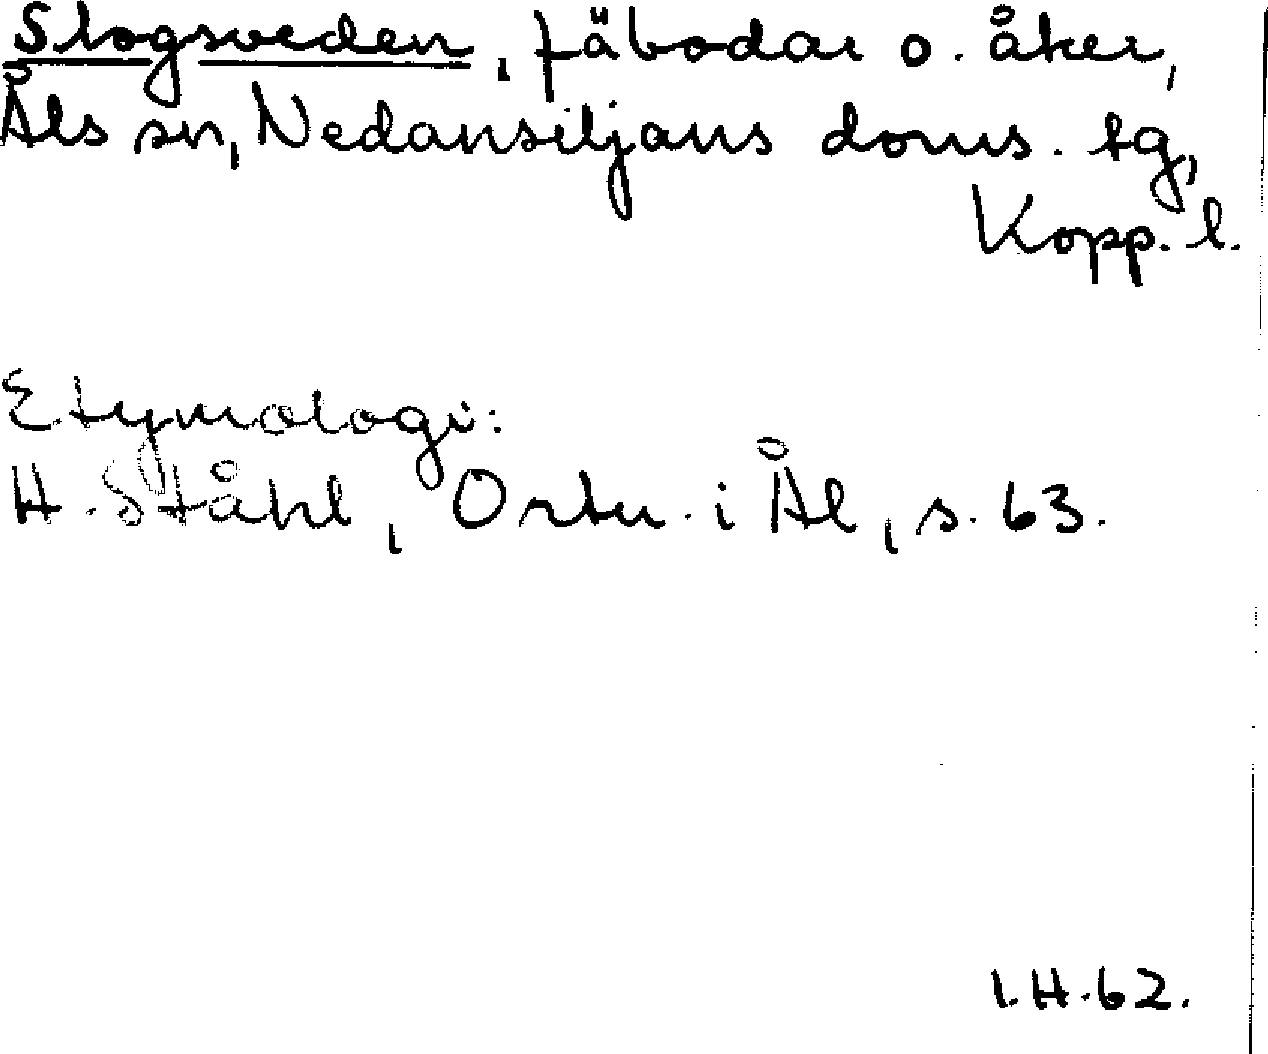 Slogsveden, fäbodar o. åker,
Åls sn, Nedansiljans doms. tg,
Kopp. l.
Etymologi:
H. Ståhl, Ortn. i Ål, s. 63.
I.H.62.